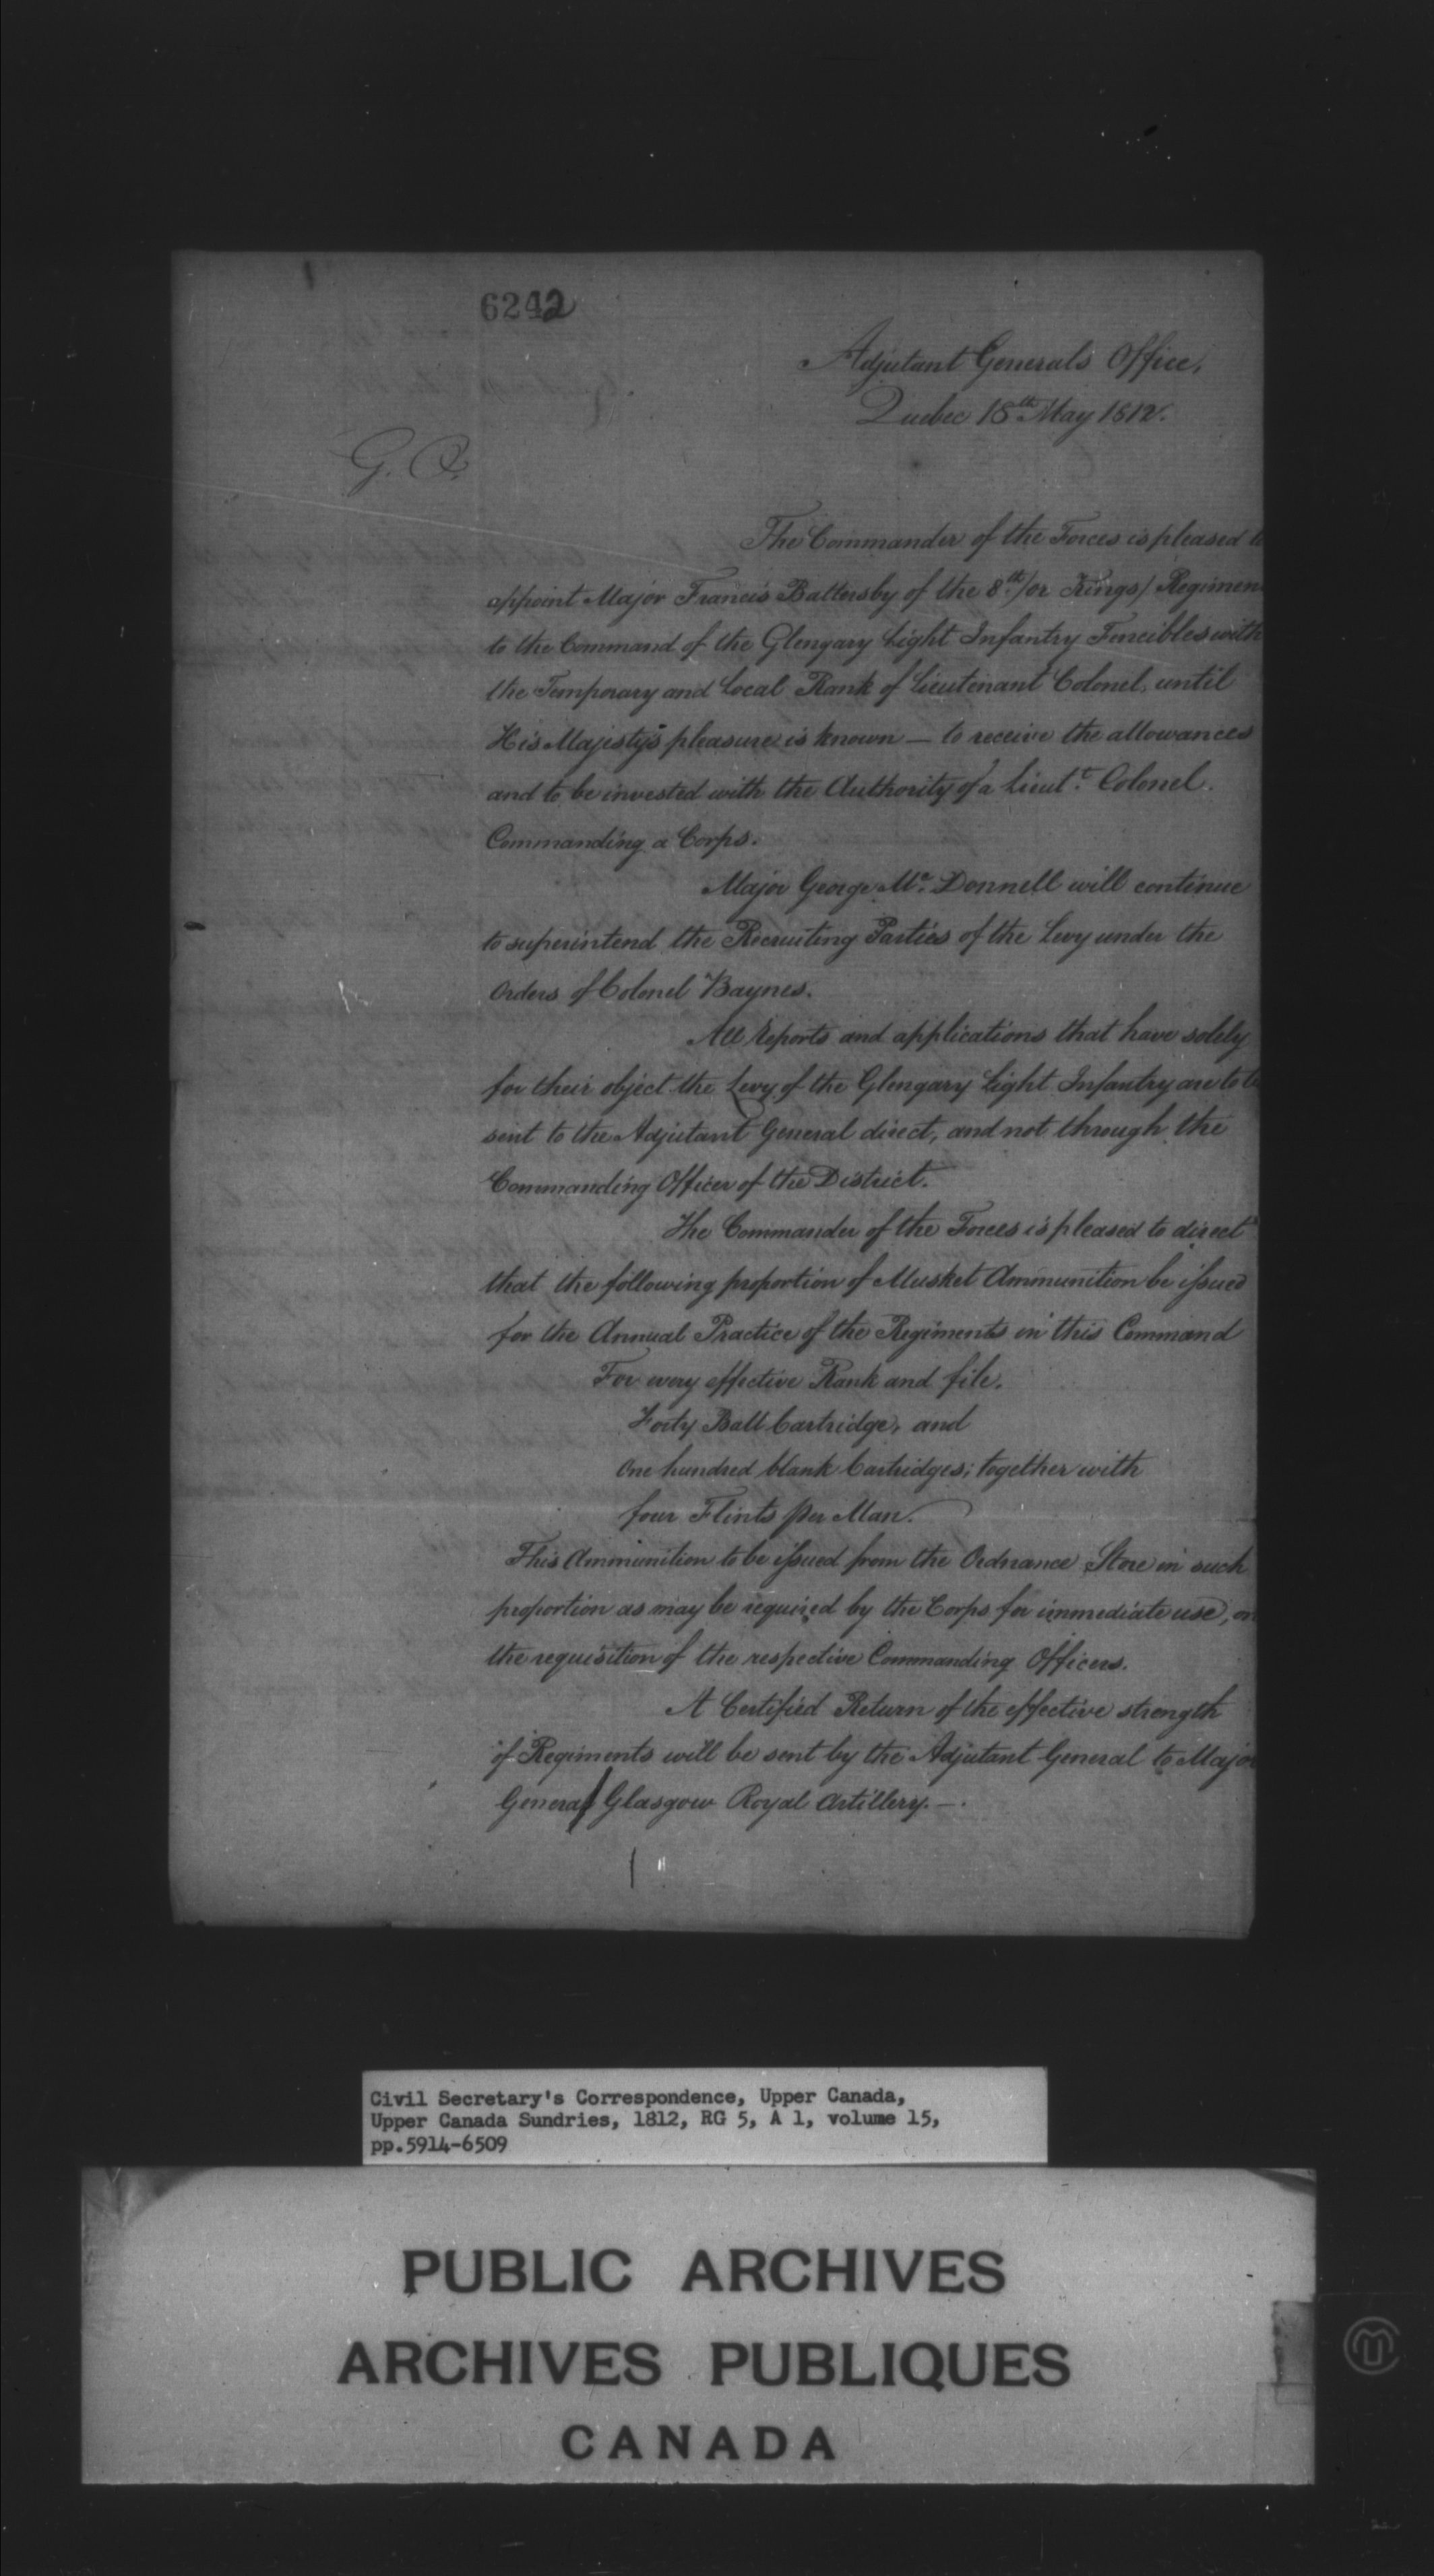 6242
Adjutant Generals Office,
Quebec 18th May 1812.
G. O.
The Commander of the Forces is pleased to
appoint Major Francis Battersby of the 8th /or Kings/ Regimen
to the Command of the Glengary Light Infantry Fencibles with
the Temporary and Local Rank of Lieutenant Colonel, until
His Majesty's pleasure is known — to receive the allowances
and to be invested with the Authority of a Lieutt. Colonel.
Commanding a Corps.
Major George Mc. Donnell will continue
to superintend the Recruiting Parties of the Levy under the
Orders of Colonel Baynes.
All Reports and applications that have solely
for their object the Levy of the Glengary Light Infantry are to be
sent to the Adjutant General direct, and not through the
Commanding Officer of the District.
The Commander of the Forces is pleased to direct
that the following proportion of Musket Ammunition be issued
for the Annual Practice of the Regiments in this Command
For every effective Rank and file.
Forty Ball Cartridge, and
One hundred blank Cartridges; together with
four Flints per Man.
This Ammunition to be issued from the Ordnance Store in such
proportion as may be required by the Corps for immediate use, on
the requisition of the respective Commanding Officers.
A Certified Return of the effective strength
of Regiments will be sent by the Adjutant General to Major
General Glasgow Royal Artillery. —.
Civil Secretary's Correspondence, Upper Canada,
Upper Canada Sundries, 1812, RG 5, A 1, volume 15,
pp.5914-6509
PUBLIC ARCHIVES
ARCHIVES PUBLIQUES
CANADA